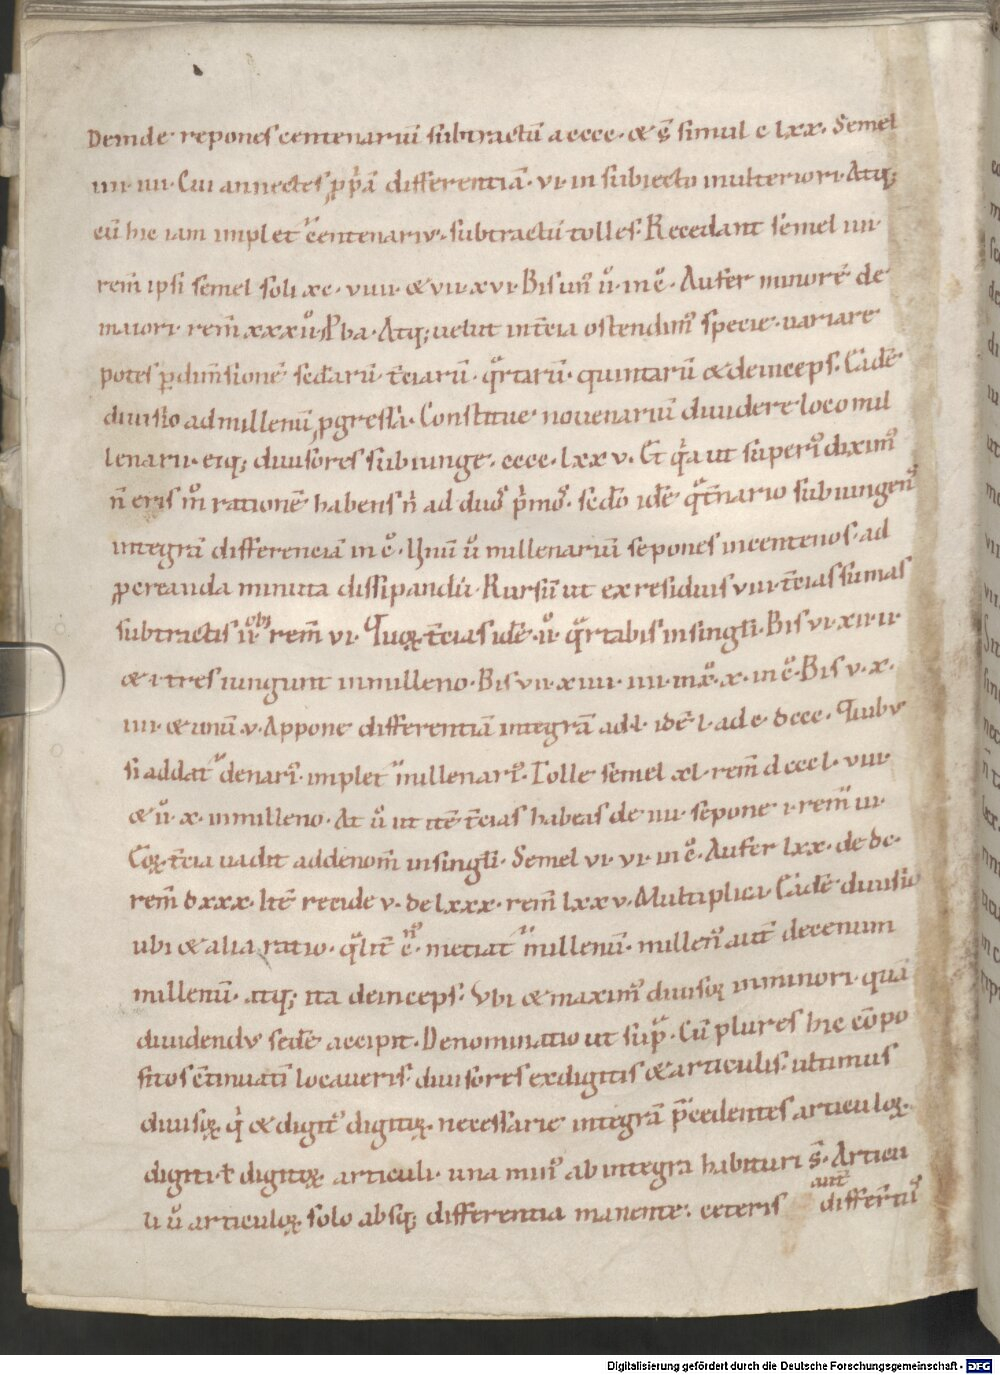 Deinde repones centenariū subtractū a cccc · & s̄ simul c lxx · Semel
iiii · iiii · Cui annectes ꝓpā differentiā · vi · in subiecto inulteriori · Atq;
cū hic iam implet᷑ centenariꝰ · subtractū tolles · Recedant semel iiii ·
rem̄ ipsi semel soli xc · viiii · & vii · xvi · Bis un̄ · in · Aufer minorē de
maiori · rem̄ xxx · Atq; uelut in t̄cia ostendimꝰ specie · uariare
potes ꝑ dim̄sionē sedarū t̄ciarū · qͣrtarū · quintarū & deinceps · Eadē
diuisio ad millenū ꝓgressa · Constitue nouenariū diuidere loco mil
lenarii · eiq; diuisores subiunge · cccc · lxx v · Et qͥa ut superiꝰ diximꝰ
n̄ eris rationē habens n̄ ad duoꝰ pͥmoꝰ · sedo idē qͣt̄nario subiungenꝰ
integrā differenciā in · Unū u̇ millenariū sepones in centenos · ad
ꝓcreanda minuta dissipandū · Rursū ut ex residuis viii · t̄cias sumas
subtractis ii · obꝰ rem̄ vi · Quoꝝ t̄cias idē · ii · qͣrtabis in singͭi · Bis vi · xii · ii ·
& · i · tres iungunt in milleno · Bis vii · xiiii · iiii · in · x · in · Bis v · x ·
iiii · & unū · v · Appone differentiā integrā ad · l · idē · l · ad c · dccc · Quibꝰ
si addat᷑ denariꝰ · implet᷑ millenariꝰ · Tolle semel xl · rem̄ dcccl · viii
& ii · x · in milleno · At u̇ ut itē t̄cias habeas de iiii · sepone · i · rem̄ iii ·
Coꝝ t̄cia uadit ad denom̄ in singͭi · Semel vi · vi · in · Aufer lxx · de dc ·
rem̄ dxxx · Itē recide v · de lxxx · rem̄ lxxv · Multiplica · Eadē diuisio
ubi & alia ratio · qͣlit̄ metiat᷑ millenū · millenꝰ aut̄ decenum
millenū · atq; ita deinceps · Ubi & maximꝰ diuisoꝝ in minori · quā
diuidendꝰ sedē accipit · Denominatio ut supͣ · Cū plures hic cōpo
sitos c̄tinuatī locaueris · diuisores ex digitis & articulis · ultimus
diuisoꝝ · qͥ & digitꝰ digitoꝝ · necessarie integrā p̄cedentes articuloꝝ ·
digiti · ł digitoꝝ articuli · una minꝰ ab integra habituri s̄ · Articu
li u̇ articuloꝝ solo absq; differentia manente · ceteris aut̄ differtꝰ
Digitalisierung gefördert durch die Deutsche Forschungsgemeinschaft - DFG